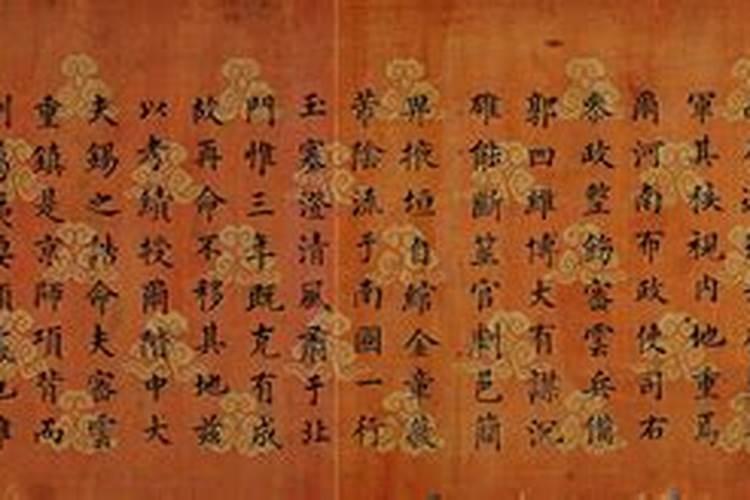 軍其核視内地重焉
爾河南布政使司右
參政整飭密雲兵備
郭四維博大有謀沉
雄能斷筮官劇邑簡
畀掖垣自綰金章薇
芾陰流于南國一行
玉塞澄清風肅于北
門惟三年既克有成
故再命不移其地茲
以考績授爾階中大
夫錫之誥命夫密雲
重鎮是京師項背而